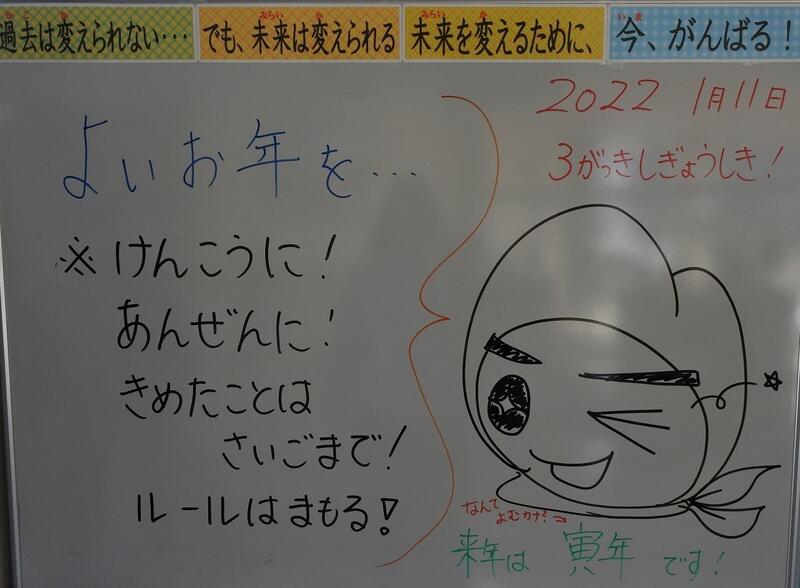 過去は変えられない… でも、未来は変えられる 未来を変えるために、 今、がんばる!
よいお年を…
※けんこうに!
あんぜんに!
きめたことは
さいごまで!
ルールはまもる!
2022 1月11日
3がっきしぎょうしき!
なんて
よむカナ?
来年は 寅年 です!